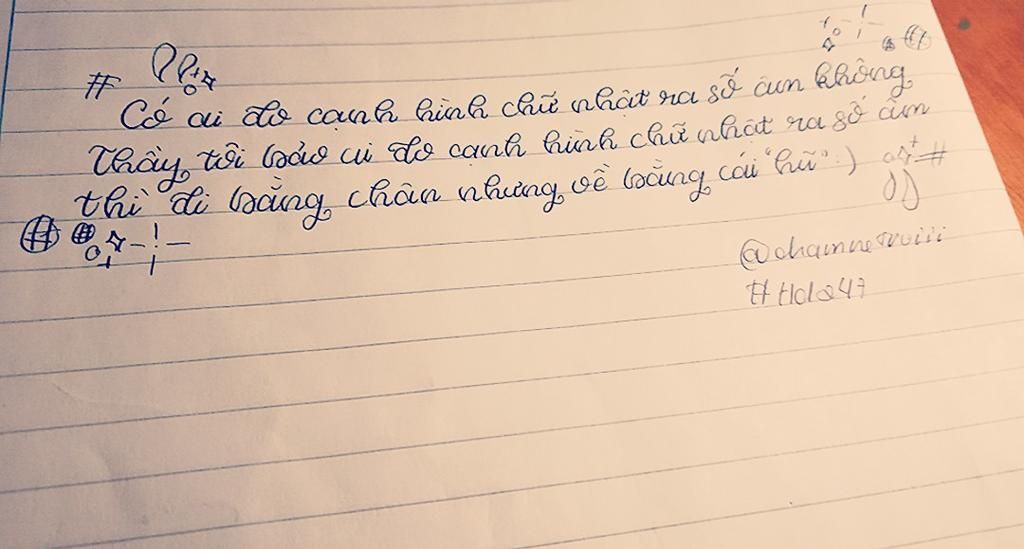 Có ai đo cạnh hình chữ nhật ra số âm không
Thầy tôi bảo ai đo cạnh hình chữ nhật ra số âm
thì đi bằng chân nhưng về bằng cái "hũ" :)